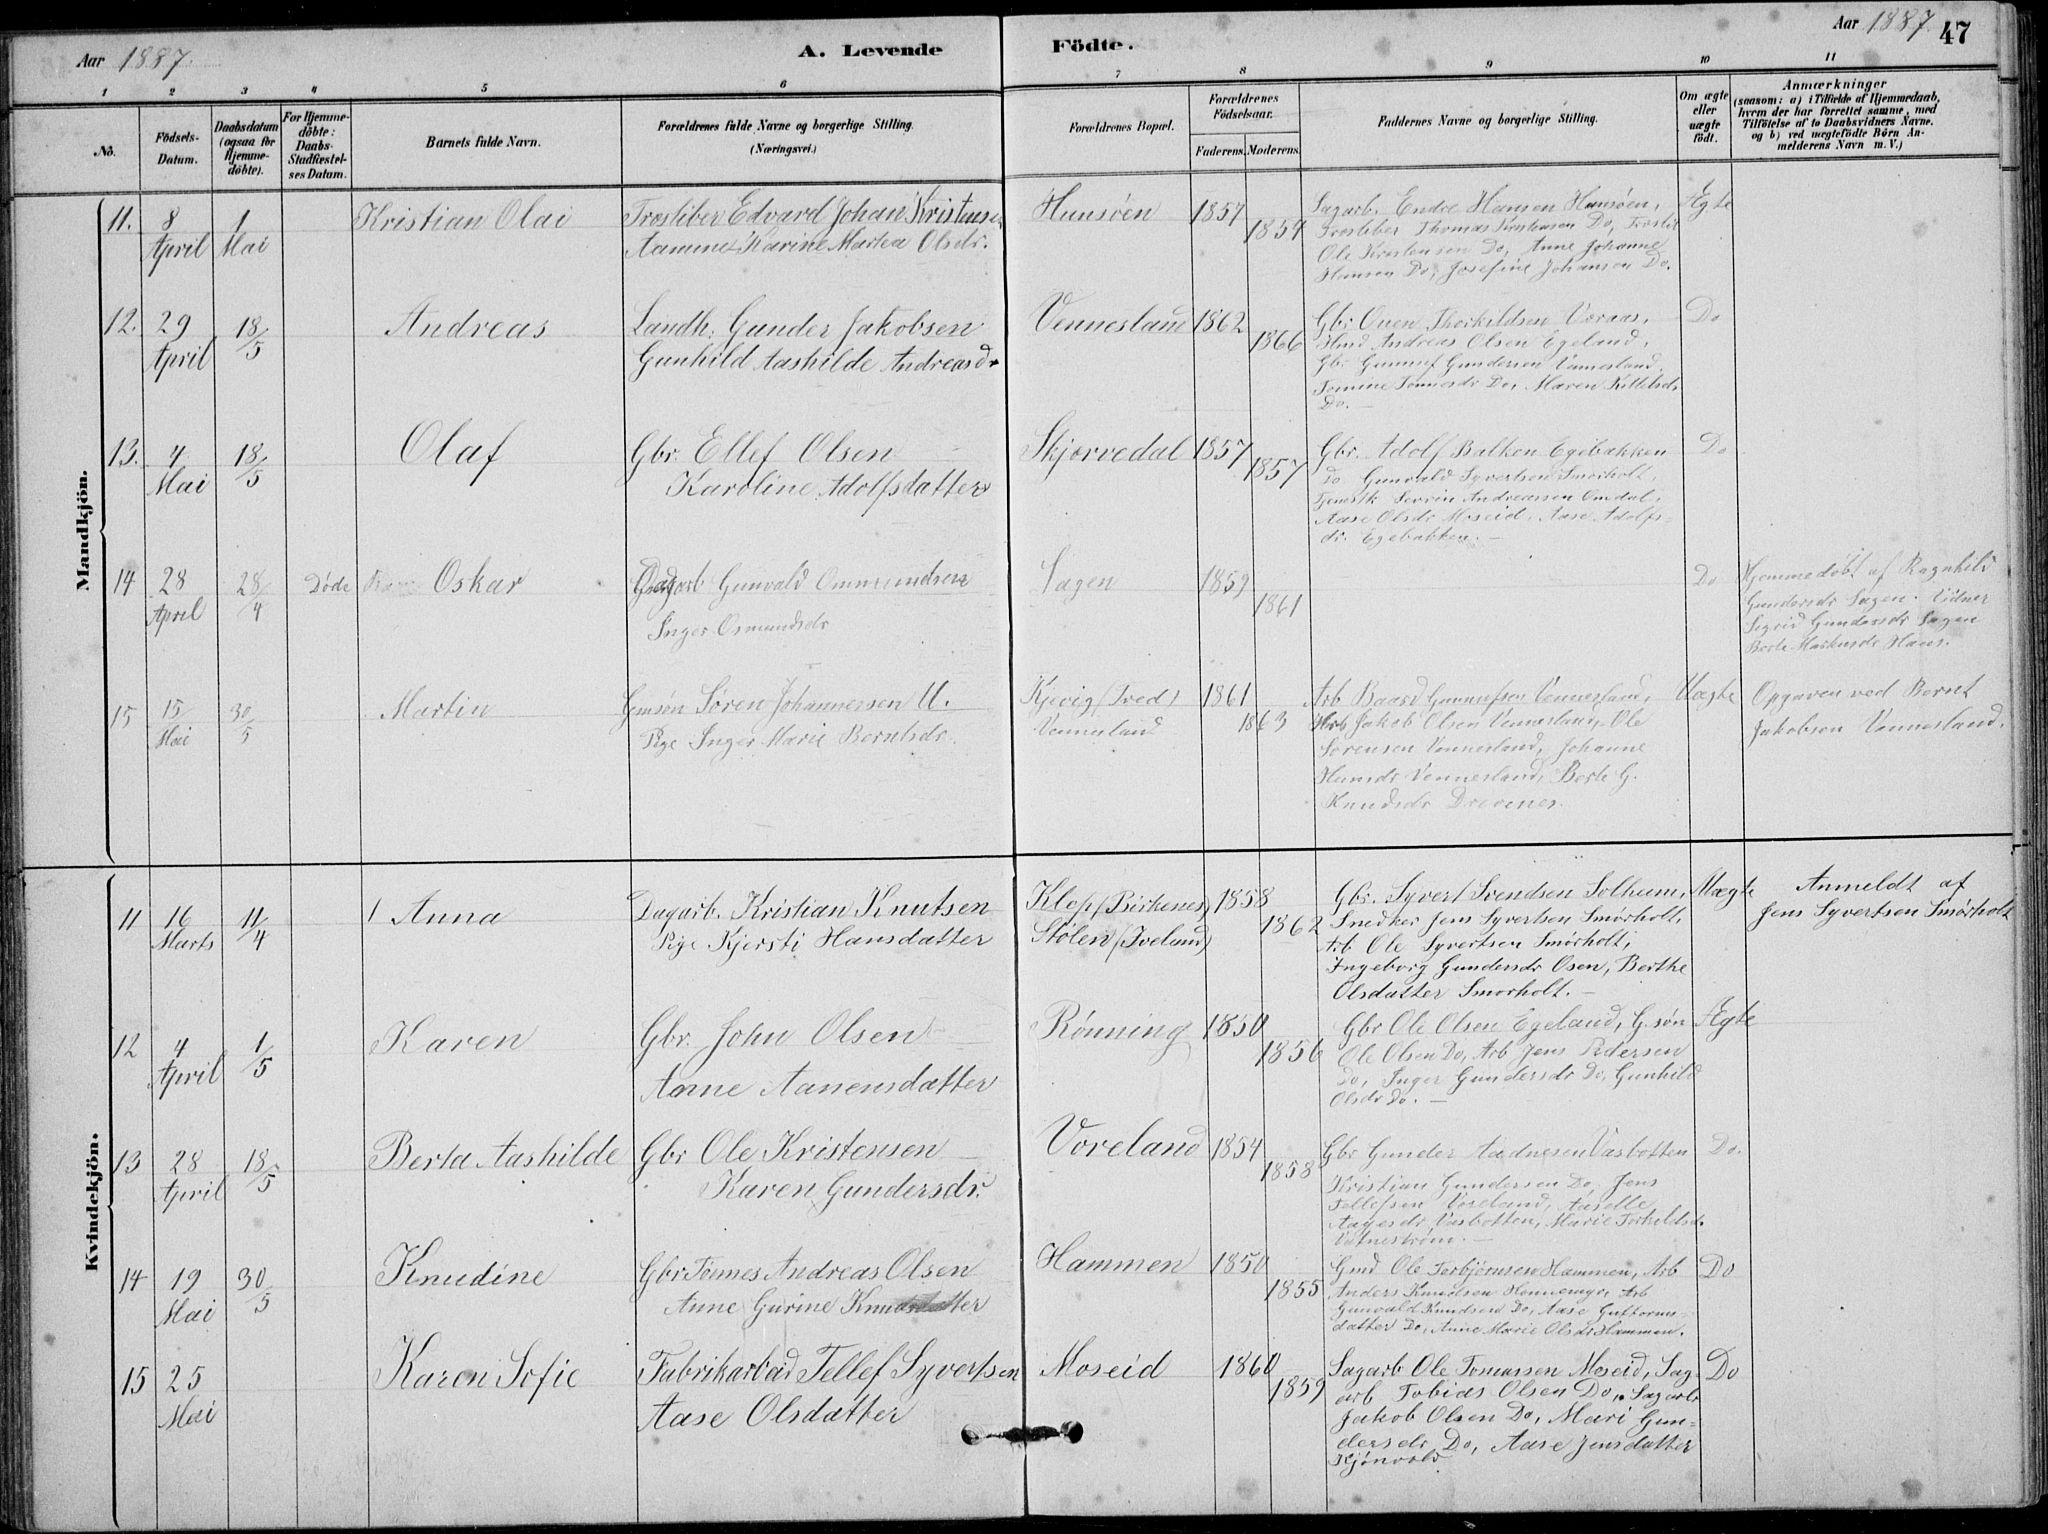 Aar 1887.
A. Levende Födte.
Aar 1887. 47
1 2 3 4 5 6 7 8 9 10 11
No.
Födsels-Datum.
Daabsdatum (ogsaa for Hjemme-döbte).
For Hjemme-döbte: Daabs-Stadfæstel-ses Datum.
Barnets fulde Navn.
Forældrenes fulde Navne og borgerlige Stilling.
(Næringsvei.)
Forældrenes Bopæl.
Forældrenes Födselsaar.
Faderens. Moderens.
Faddernes Navne og borgerlige Stilling.
Om ægte eller uægte födt.
Anmærkninger
(saasom: a) i Tilfælde af Hjemmedaab,
hvem der har forrettet samme, med
Tilföielse af to Daabsvidners Navne.
og b) ved uægtefödte Börn An-
melderens Navn m. V.)
Mandkjön.
11. 8 April 1 Mai Kristian Olai
Edvard Johan Kristensen
Karine Martea Olsdr.
Hunsøen 1857 1859
Sagarb. Endre Hansen Hunsøen,
Thomas Kristensen Do,
Ole Kristensen Do, Anne Johanne
Hansen Do, Josefine Johansen Do.
Ægte
12. 29 April 18/5 Andreas
Landh. Gunder Jakobsen
Gunhild Aashilde Andreasdr
Vennesland 1862 1866
Gbr Ouen Thorkildsen Voraas,
Andreas Olsen Egeland,
Gbr Gunnuf Gundersen Vennesland,
Tomine Tønnesdr Do, Maren Kittelsdr
Do. —
Do
13. 4 Mai 18/5 Olaf
Gbr. Ellef Olsen
Karoline Adolfsdatter
Skjørvedal 1857 1857
Gbr. Adolf Balken Egebakken
Do Gunvald Syvertsen Smørholt,
Andreassen Omdal,
Aase Olsdr Moseid, Aase Adolfs-
dr. Egebakken. —
Do
14 28 April 28/4 Døde Oskar
Gunvald Ommundsen
Inger Osmundsdr
Sagen 1859 1861
Do
Hjemmedøbt af Ragnhild
Gundersdr Sagen. Vidner
Sigrid Gundersdr Sagen
Berte Markusdr Haus.
15 15 Mai 30/5 Martin
Søren Johannessen U.
Pige Inger Marie Berntsdr.
Kjevig (Tved)
Vennesland
1861 1863
Arb Baard Gunnufsen Vennesland,
Arb Jakob Olsen Vennesland, Ole
Sørensen Vennesland, Johanne
Hansdr Vennesland, Berte G.
Knudsdr Drivenes.
Uægte
Opgaven ved Bernt
Jakobsen Vennesland.
Kvindekjön.
11 16 Marts 11/4 Anna
Dagarb. Kristian Knutsen
Pige Kjersti Hansdatter
Klep (Birkenes)
Stølen (Iveland)
1858 1862
Gbr. Syvert Svendsen Solheim,
Snedker Jens Syvertsen Smørholt,
Arb Ole Syvertsen Smørholt,
Ingeborg Gundersdr Osen, Berthe
Olsdatter Smørholt. —
Uægte
Anmeldt af
Jens Syvertsen Smørholt
12 4 April 1/5 Karen
Gbr. John Olsen
Anne Aanensdatter
Rønning 1850 1856
Gbr Ole Olsen Egeland, G.søn
Ole Olsen Do, Arb Jens Pedersen
Do, Inger Gundersdr Do, Gunhild
Olsdr Do. —
Ægte
13 28 April 18/5 Berta Aashilde
Gbr Ole Kristensen
Karen Gundersdr.
Voreland 1854 1858
Gbr Gunder Aadnesen Vasbotten
Kristian Gundersen Do, Jens
Tellefsen Voreland, Aaselle
Aagesdr Vasbotten, Marie Torkildsdr
Vatnestrøm. —
Do.
14 19 Mai 30/5 Knudine
Gbr Tønnes Andreas Olsen
Anne Gurine Knudsdatter
Hammen 1850 1855
Gmd Ole Torbjørnsen Hammen, Arb
Anders Knudsen Honnemyr, Arb
Gunvald Knudsen Do, Aase Guttorms-
datter Do, Anne Marie Olsdr Hammen.
Do
15 25 Mai Karen Sofie
Fabrikarbeid Tellef Syvertsen
Aase Olsdatter
Moseid 1860 1859
Sagarb Ole Tomassen Moseid, Sag-
arb Tobias Olsen Do, Sagarb
Jakob Olsen Do, Mari Gun-
dersdr Do, Aase Jensdatter
Kjønvold
Do